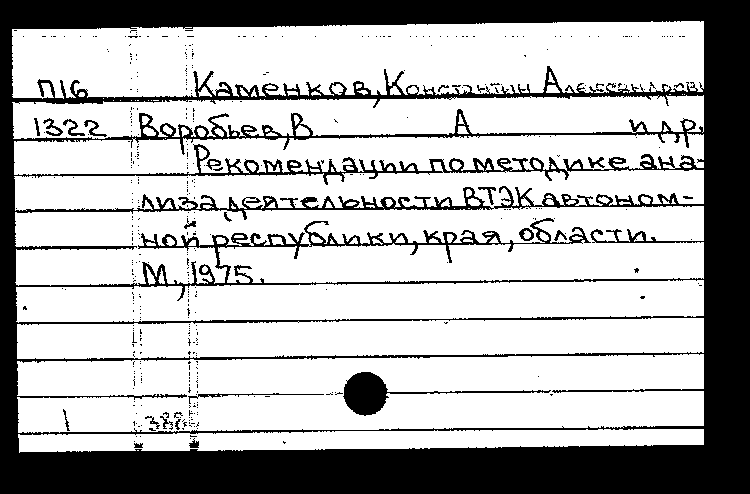 П16 Каменков, Константин Александрови
1322 Воробьев, В А и др.
Рекомендации по методике ана-
лиза деятельности ВТЭК автоном-
ной республики, края, области.
М., 1975.
1 388